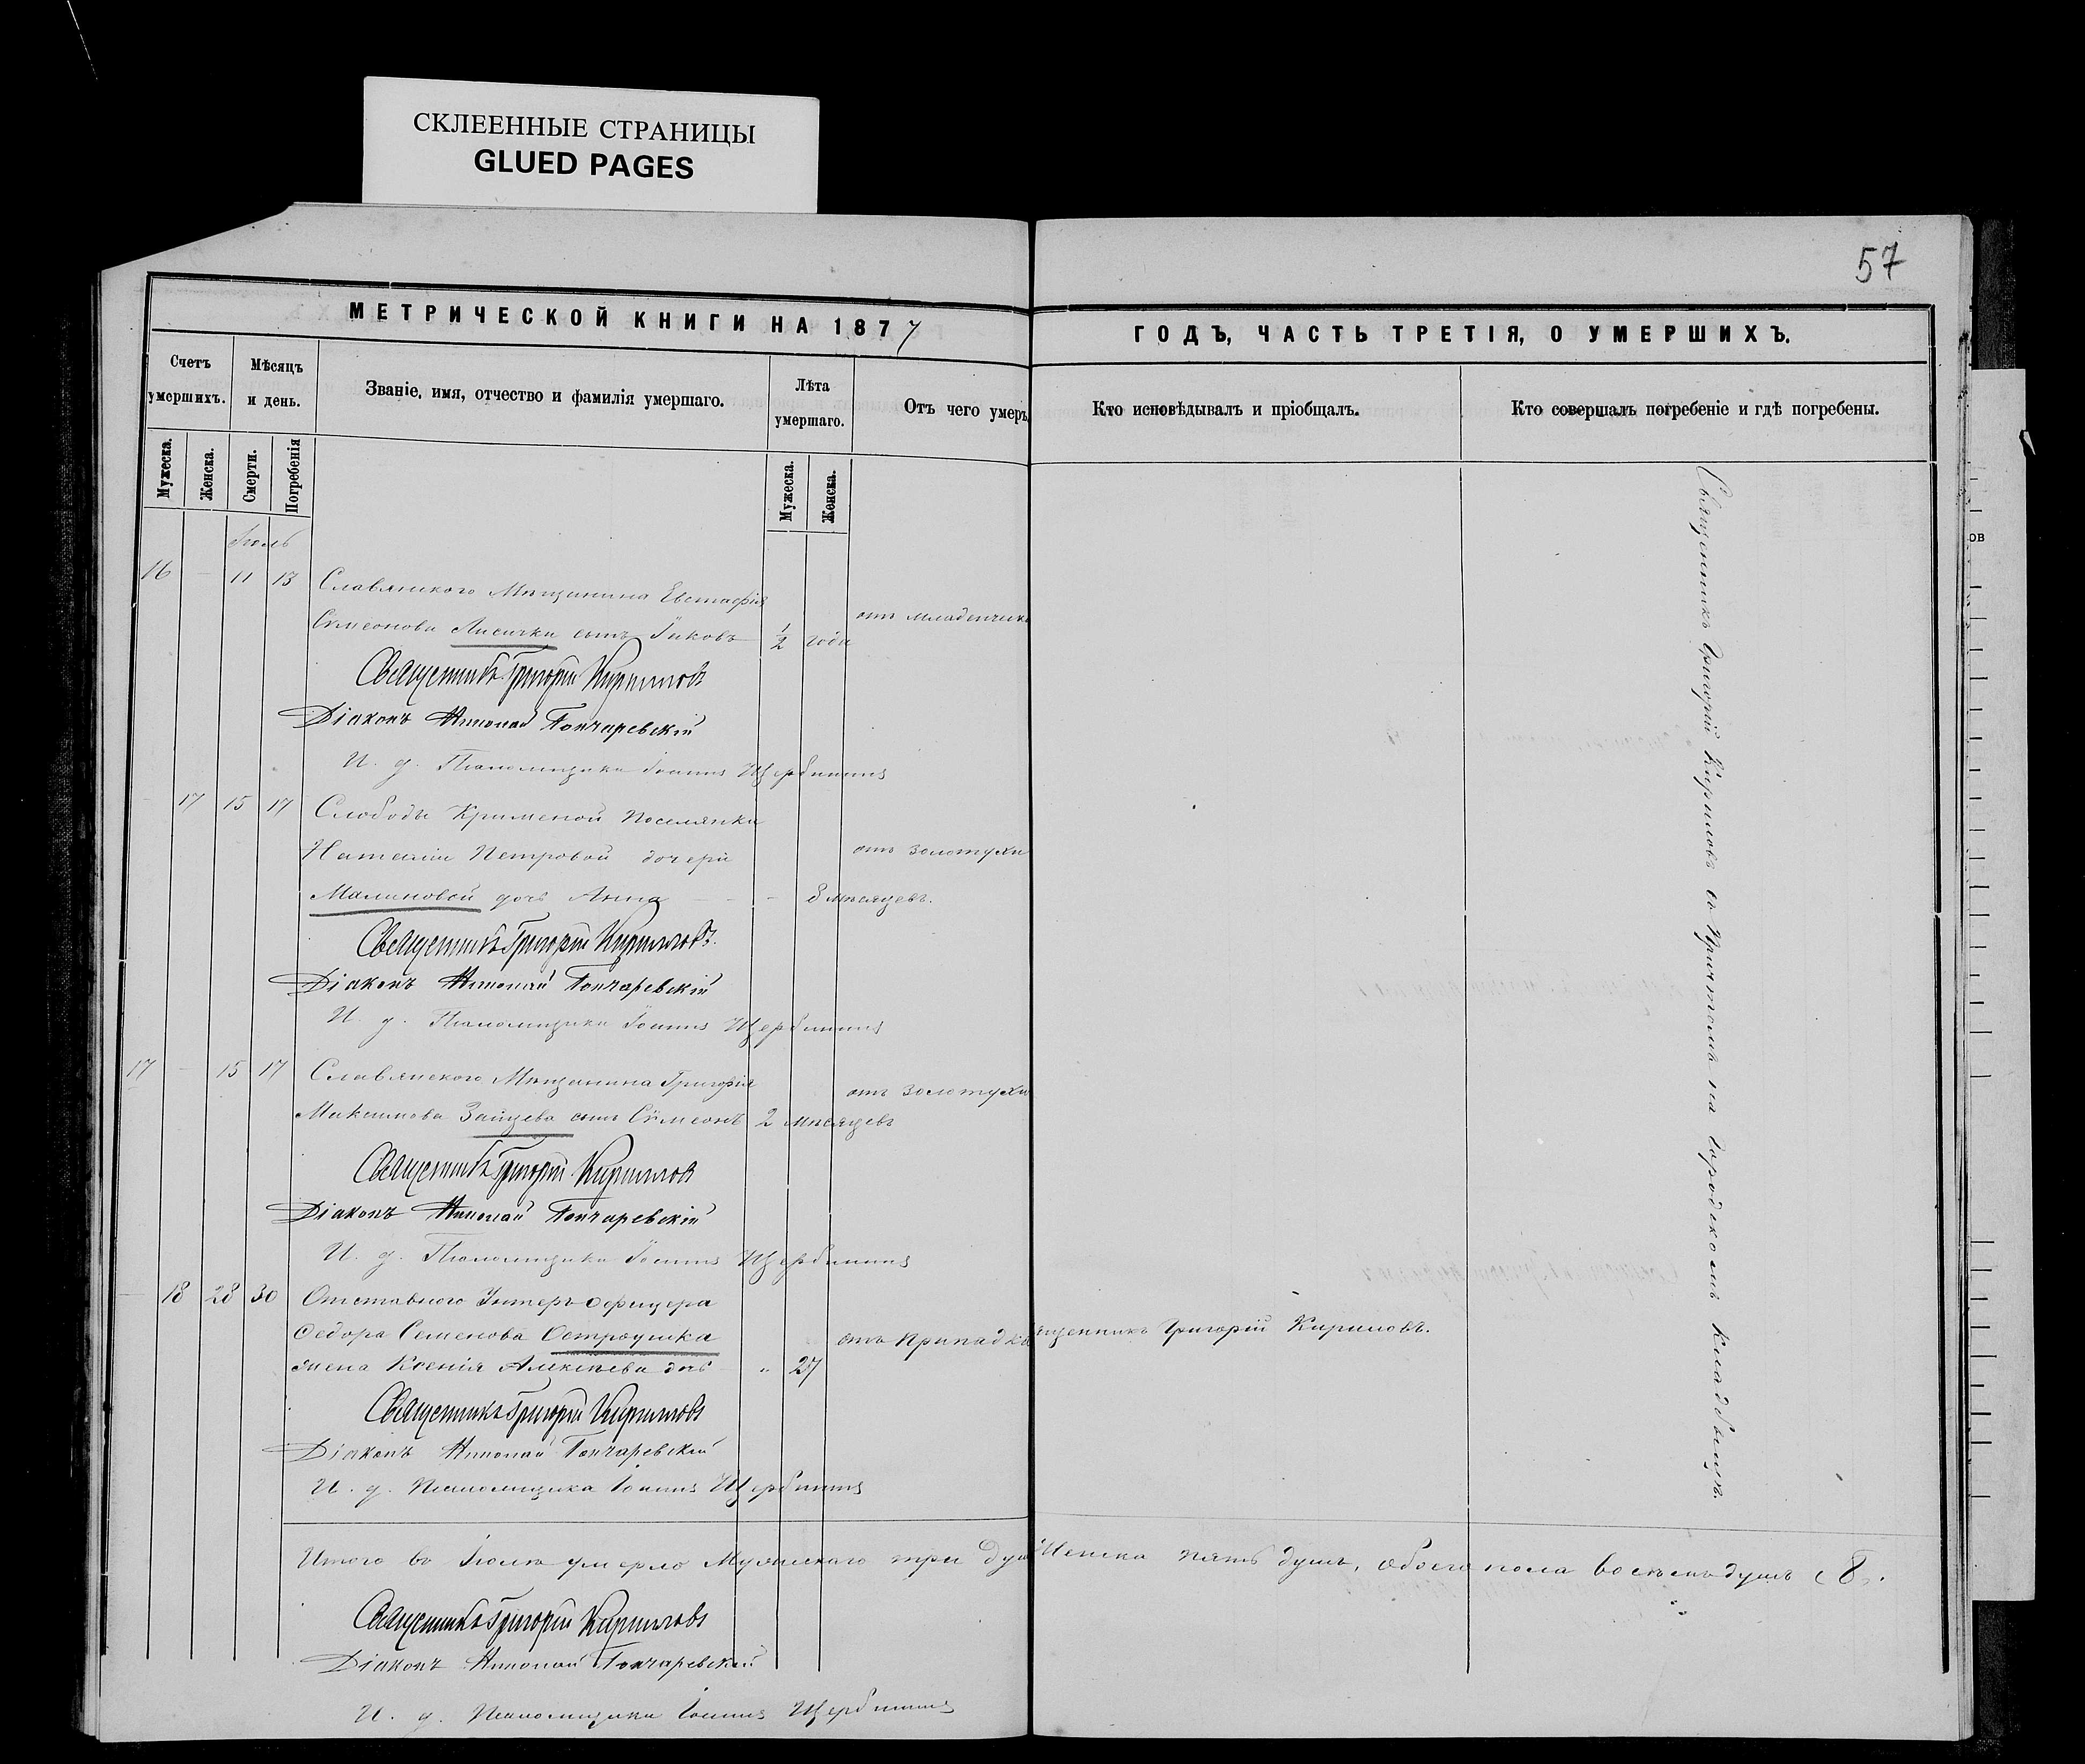 СКЛЕЕННЫЕ СТРАНИЦЫ
GLUED PAGES
57
МЕТРИЧЕСКОЙ КНИГИ НА 1877
ГОДЪ, ЧАСТЬ ТРЕТІЯ, О УМЕРШИХЪ.
Счетъ умершихъ.
Мѣсяцъ и день.
Званіе, имя, отчество и фамилія умершаго.
Лѣта умершаго.
Отъ чего умеръ
Кто исповѣдывалъ и пріобщалъ.
Кто совершалъ погребеніе и гдѣ погребены.
Мужеска.
Женска.
Смерти.
Погребенія
Мужеска.
Женска.
Іюль
16 - 11 13 Славянскаго Мѣщанина Евстафія
Сѵмеонова Лисички сынъ Іаковъ 1/2 года
отъ младенческ
Священникъ Григорій Кириловъ
Діаконъ Николай Гончаревскій
И. д. Псаломщика Іоаннъ Щербининъ
17 15 17 Слободы Кременой Поселянки
Наталіи Петровой дочери
отъ золотухи
Малиновой дочь Анна - - - 8 мѣсяцевъ.
Священникъ Григорій Кириловъ.
Діаконъ Николай Гончаревскій
И. д. Псаломщика Іоаннъ Щербининъ
17 - 15 17 Славянского Мѣщанина Григорія
отъ золотухи
Максимова Зайцева сынъ Сѵмеонъ 2 мѣсяцевъ
Священникъ Григорій Кириловъ
Діаконъ Николай Гончаревскій
И. д. Псаломщика Іоаннъ Щербининъ
18 28 30 Отставного Унтеръ-офицера
Федора Семенова Остроушка
отъ припадка
щенникъ Григорій Кириловъ.
жена Ксенія Алексѣева дочь „ 27
Священникъ Григорій Кириловъ
Діаконъ Николай Гончаревскій
И. д. Псаломщика Іоаннъ Щербининъ
Священникъ Григорій Кириловъ съ Причтомъ на Городскомъ Кладбищѣ.
Итого въ Іюлѣ умерло Мужескаго три душ Женска пять душъ, обоего пола восемь душъ (8).
Священникъ Григорій Кириловъ
Діаконъ Николай Гончаревскій
И. д. Псаломщика Іоаннъ Щербининъ
ов